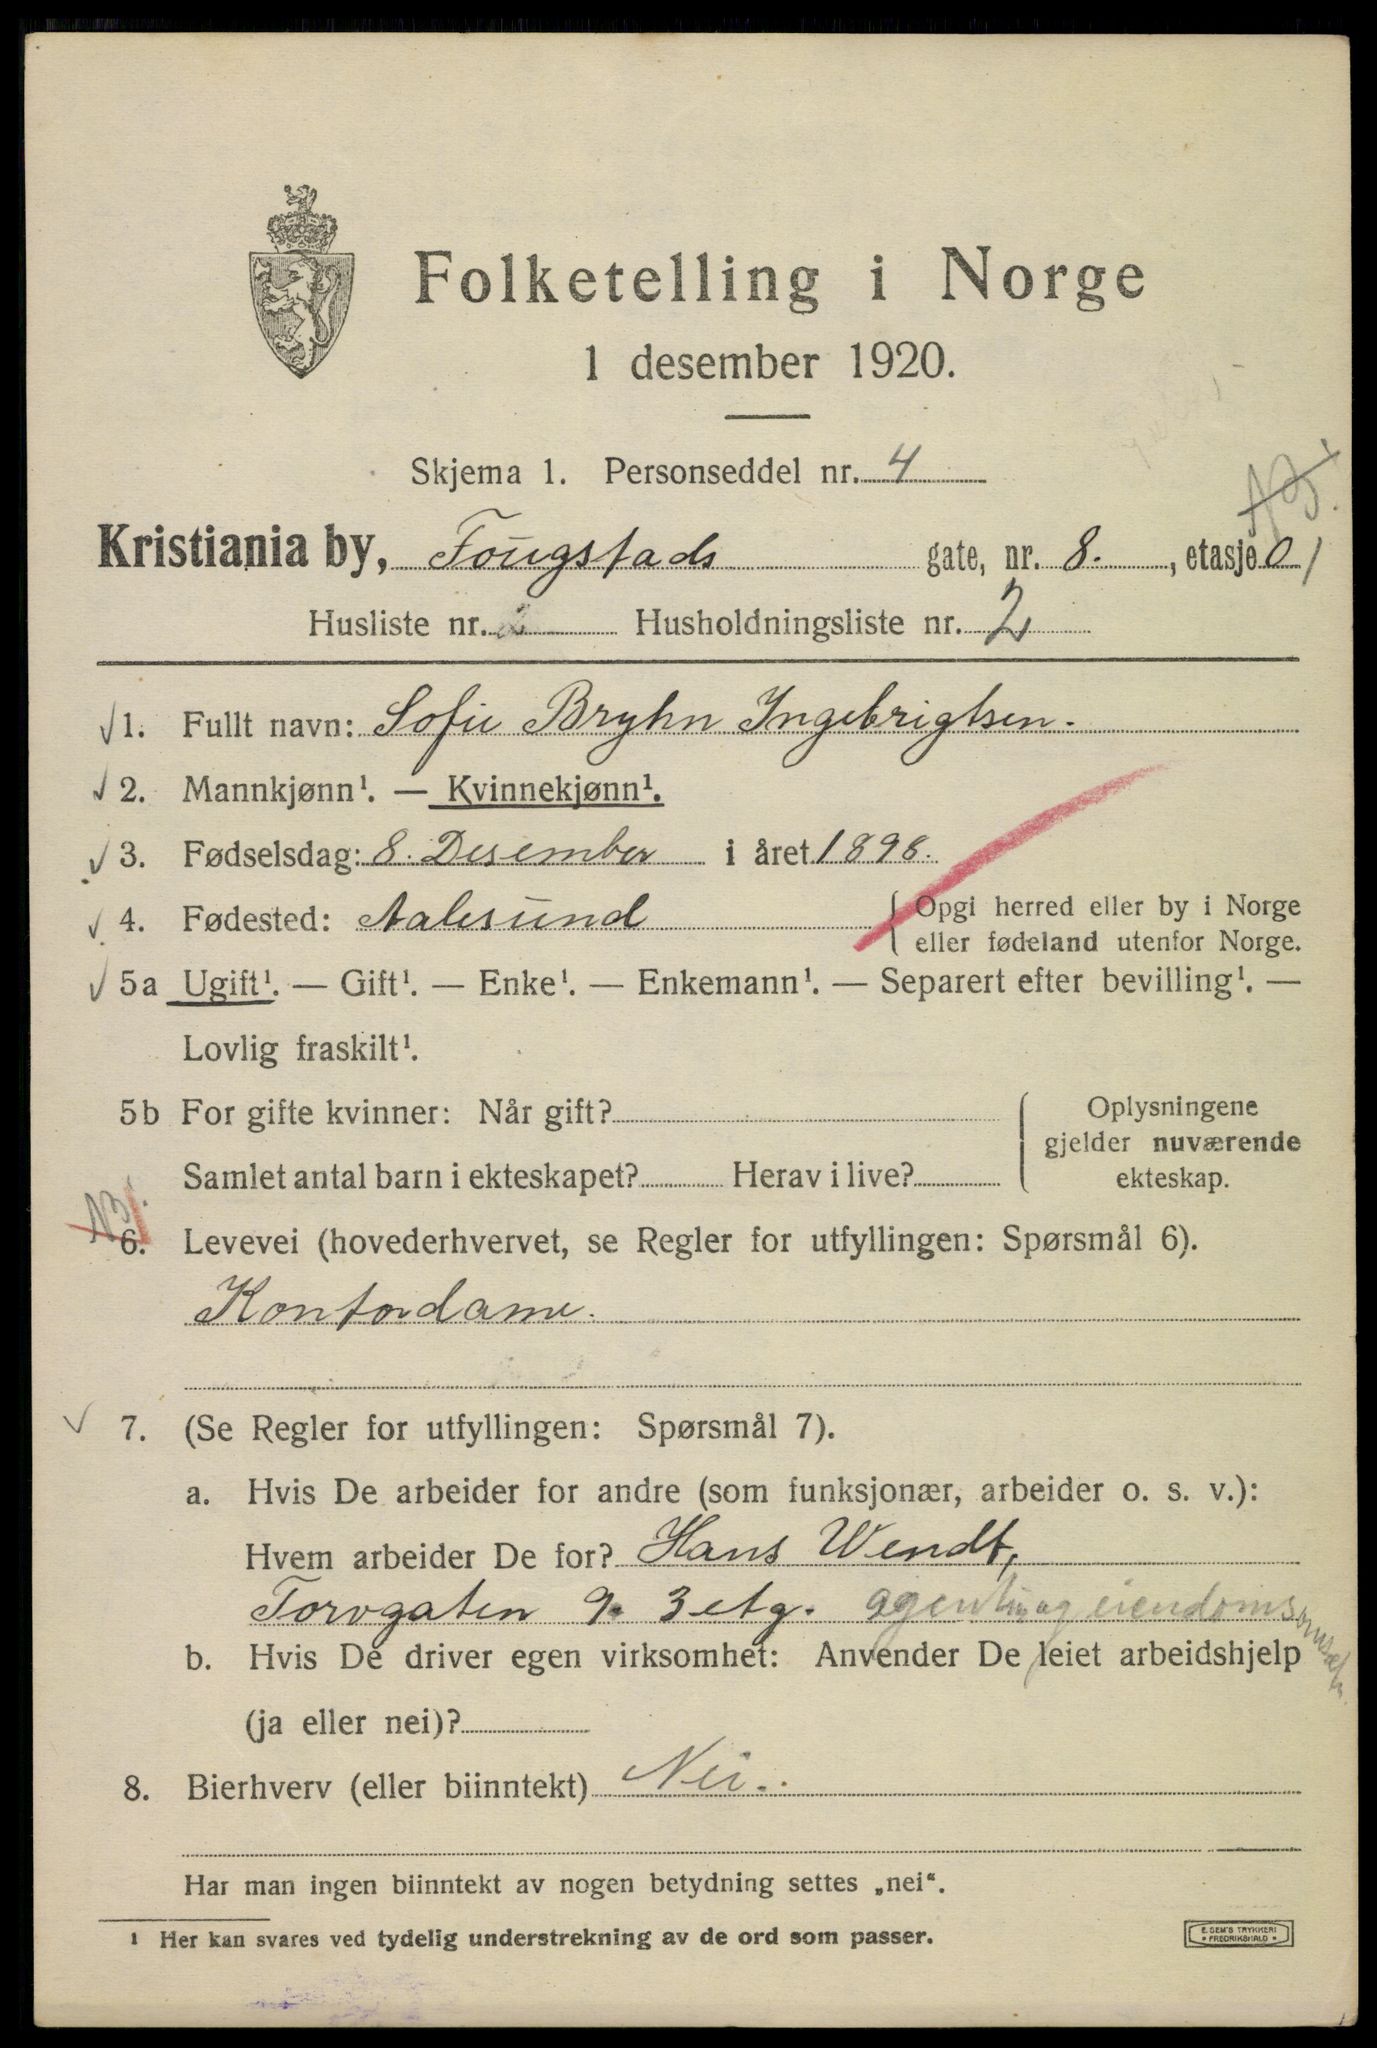 Folketelling i Norge
1 desember 1920.
Skjema 1. Personseddel nr. 4
Kristiania by, Fougstads gate, nr. 8. , etasje 0/
Husliste nr. 2 Husholdningsliste nr. 2
1. Fullt navn: Sofie Bryhn Ingebrigtsen.
2. Mannkjønn¹. — Kvinnekjønn¹.
3. Fødselsdag: 8. Desember i året 1898.
4. Fødested: Aalesund { Opgi herred eller by i Norge
eller fødeland utenfor Norge.
5a Ugift¹. — Gift¹. — Enke¹. — Enkemann¹. — Separert efter bevilling¹. —
Lovlig fraskilt¹.
5b For gifte kvinner: Når gift?
Samlet antal barn i ekteskapet? Herav i live?
Oplysningene
gjelder nuværende
ekteskap.
NB!
6. Levevei (hovederhvervet, se Regler for utfyllingen: Spørsmål 6).
Kontordame.
7. (Se Regler for utfyllingen: Spørsmål 7).
a. Hvis De arbeider for andre (som funksjonær, arbeider o. s. v.):
Hvem arbeider De for? Hans Wendt,
Torvgaten 9. 3 etg. agentur og eiendoms
b. Hvis De driver egen virksomhet: Anvender De leiet arbeidshjelp
(ja eller nei)?
8. Bierhverv (eller biinntekt) Nei.
Har man ingen biinntekt av nogen betydning settes „nei“.
1 Her kan svares ved tydelig understrekning av de ord som passer.
E. SEM'S TRYKKERI
• FREDRIKSHALD •